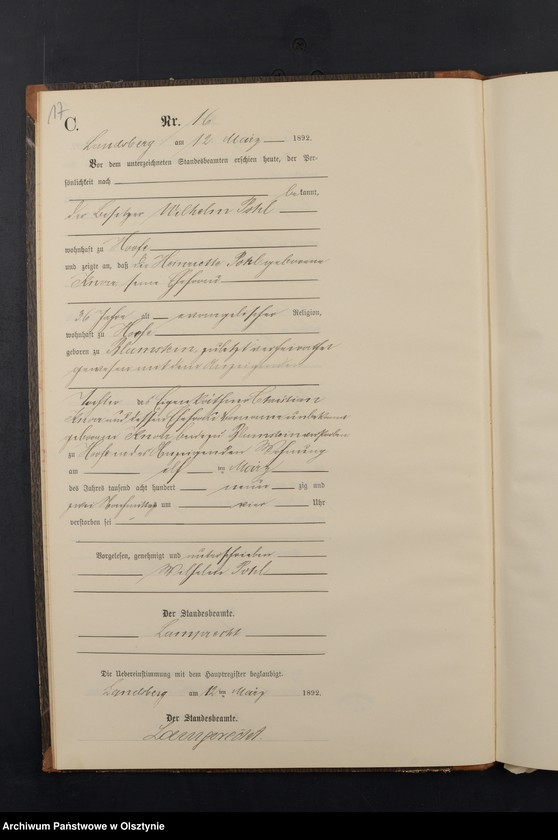 17
C.
Nr. 16
Landsberg am 12 März 1892.
Vor dem unterzeichneten Standesbeamten erschien heute, der Per-
sönlichkeit nach
bekannt,
der Besitzer Wilhelm Pohl
wohnhaft zu Hofe
und zeigte an, daß die Henriette Pohl geborene
Knorr seine Ehefrau
56 Jahre alt evangelischer Religion,
wohnhaft zu Hofe
geboren zu Blumstein, zuletzt verheirathet
gewesen mit dem Anzeigenden
Tochter des Eigenkäthner Christian
Knorr und dessen Ehefrau Vorname unbekannt
geborener Knorr beide zu Blumstein verstorben
zu Hofe in der Anzeigenden Wohnung
am elf ten März
des Jahres tausend acht hundert neun zig und
zwei Nachmittags um vier Uhr
verstorben sei
Vorgelesen, genehmigt und unterschrieben
Wilhelm Pohl
Der Standesbeamte.
Lamprecht
Die Uebereinstimmung mit dem Hauptregister beglaubigt.
Landsberg am 12ten März 1892.
Der Standesbeamte.
Lamprecht
Archiwum Państwowe w Olsztynie